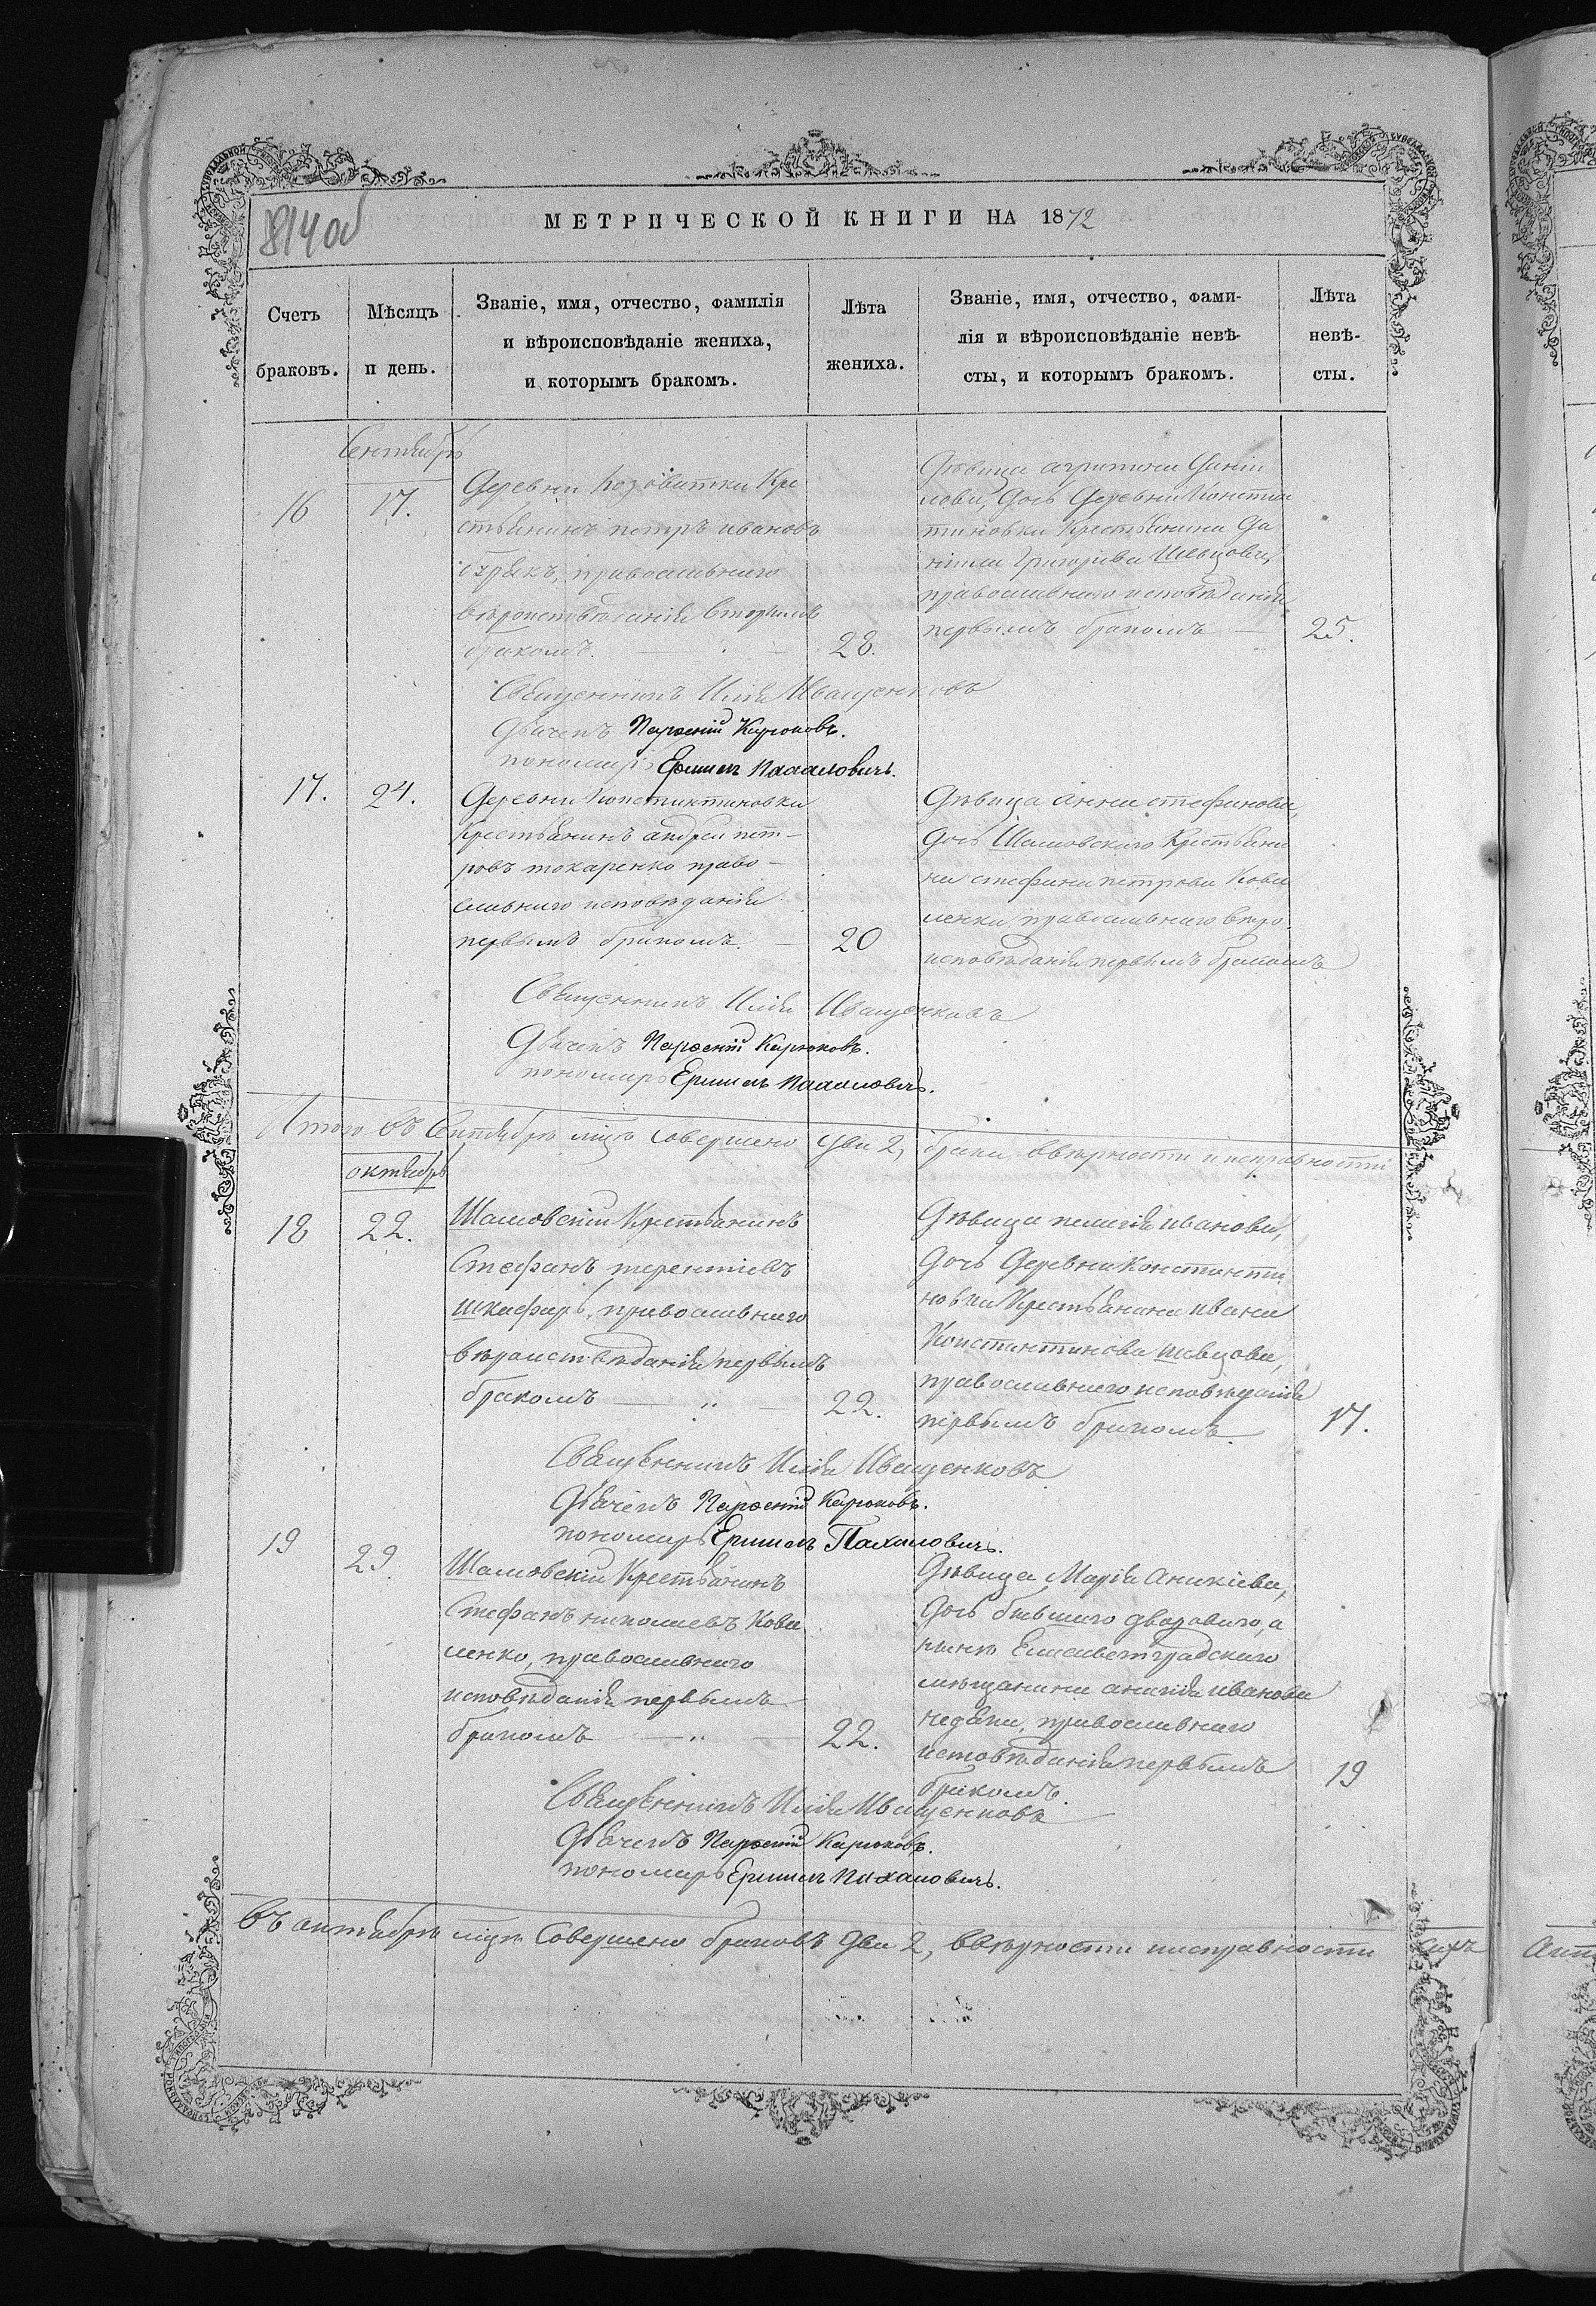 814 об
МЕТРИЧЕСКОЙ КНИГИ НА 1872
Счетъ браковъ.
Мѣсяцъ и день.
Званіе, имя, отчество, фамилія
и вѣроисповѣданіе жениха,
и которымъ бракомъ.
Лѣта
жениха.
Званіе, имя, отчество, фами-
лія и вѣроисповѣданіе невѣ-
сты, и которымъ бракомъ.
Лѣта
невѣ-
сты.
Сентябрь
16
17.
Деревни Кре
стьянинъ петръ ивановъ
православнаго
вѣроисповѣданія вторымъ
бракомъ.
28.
Дѣвица Дані
лова, дочь Деревни Констан
тиновки Крестьянина Да
ніила Григорьева Шевцова,
православнаго исповѣданія
первымъ бракомъ
25.
Священникъ Илія Иващенковъ
Дьячекъ Парѳеній Карюковъ.
пономарь
17.
24.
Деревни Константиновки
Крестьянинъ андрей пет-
ровъ токаренко право-
славнаго исповѣданія
первымъ бракомъ.
20
Дѣвица анна стефанова,
дочь Шамовскаго Крестьяни
на стефана петрова Кова
ленка, православнаго вѣро
исповѣданія первымъ бракомъ
Священникъ Илія Иващенковъ
Дьячекъ Парѳеній Карюковъ.
пономарь
Итого въ Сентябрѣ мцѣ совершено два 2, брака, ввѣрности и исправности
октябрь
18
22.
Шамовскій Крестьянинъ
Стефанъ терентіевъ
шкафарь, православнаго
вѣроисповѣданія первымъ
бракомъ
22.
Дѣвица пелагія иванова,
дочь Деревни Константи
новки Крестьянина ивана
Константинова шевцова,
православнаго исповѣданія
первымъ бракомъ.
17.
Священникъ Илія Иващенковъ
Дьячекъ Парѳеній Карюковъ.
пономарь
19
29.
Шамовскій Крестьянинъ
Стефанъ николаевъ Кова
ленко, православнаго
исповѣданія первымъ
бракомъ
22.
Дѣвица Марія Аникіева,
дочь бывшаго дворового, а
нынѣ Елисаветградскаго
мѣщанина аникія иванова
православнаго
исповѣданія первымъ
бракомъ.
19
Священникъ Илія Иващенковъ
Дьячекъ Парѳеній Карюковъ.
пономарь
въ октябрѣ мцѣ Совершено браковъ два 2, ввѣрности иисправности